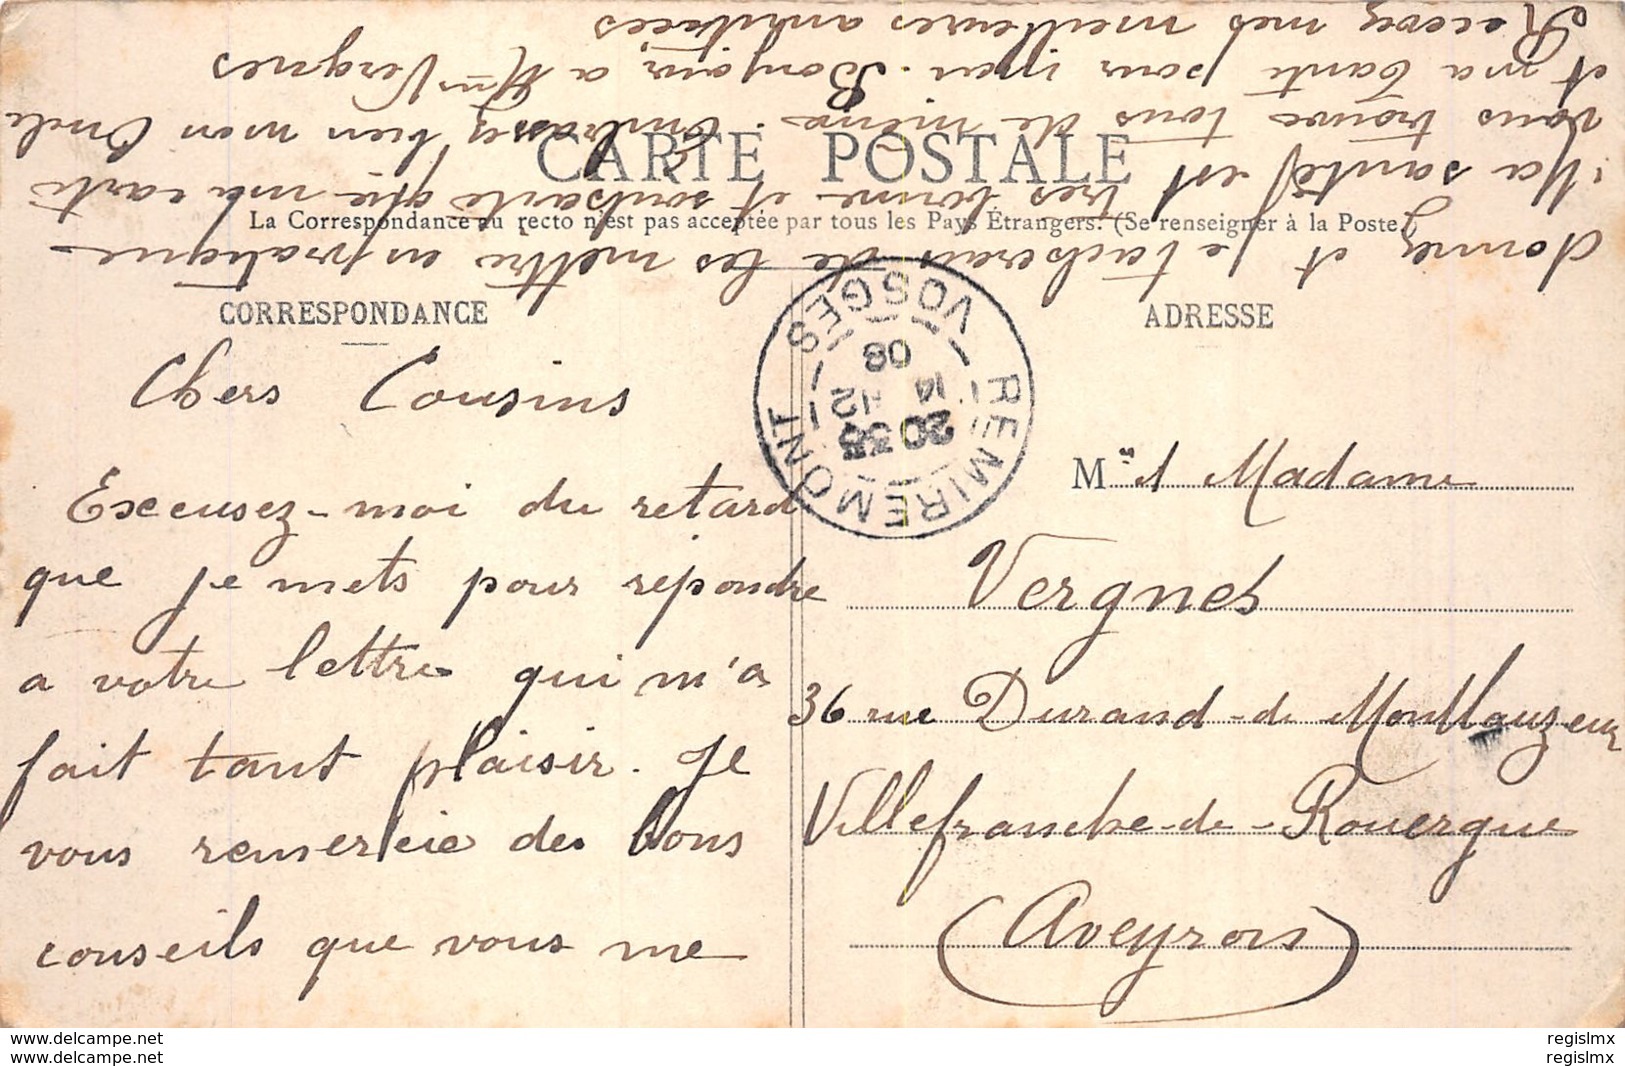 CARTE POSTALE
La Correspondance au recto n'est pas acceptée par tous les Pays Étrangers. (Se renseigner à la Poste.)
CORRESPONDANCE
Chers Cousins
Excusez-moi du retard
que je mets pour répondre
a votre lettre qui m'a
fait tant plaisir. Je
vous remerleie des bons
conseils que vous me
donnez et je tacherai de les mettre en pratique
Ma santé est très bonne et souhaite que ma carte
vous trouve tous de même. Embrassez bien mon Oncle
et ma tante pour moi. Bonjour a Mme Vergnes
Recevez mes meilleures amitiées
REMIREMONT
VOSGES
20 35
14 - 12
08
ADRESSE
M r et Madame
Vergnes
36 rue Durand-de Montlauzeur
Villefranche-de-Rouergue
(Aveyron)
regislmx
regislmx
delcampe.net
delcampe.net